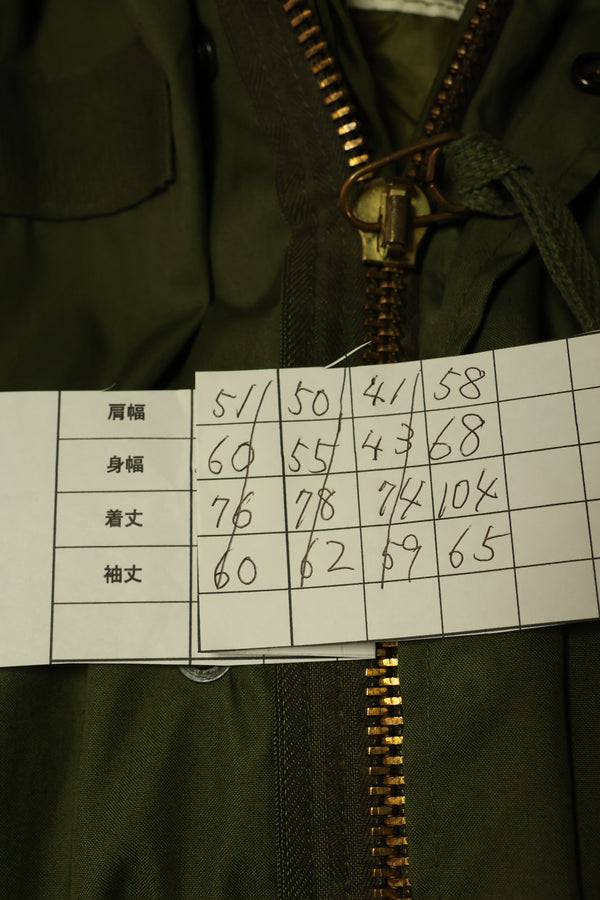 肩幅 51 50 41 58
身幅 60 55 43 68
着丈 76 78 74 104
袖丈 60 62 59 65